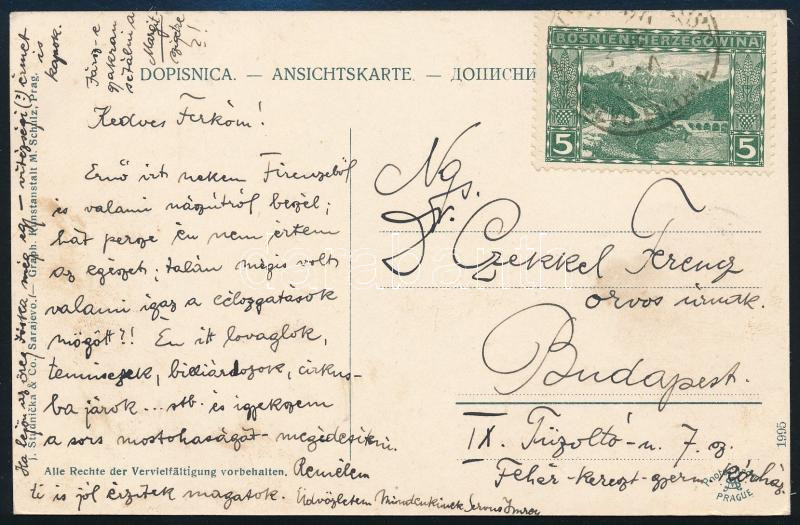 BOSNIEN-HERZEGOWINA
5 5
DOPISNICA. — ANSICHTSKARTE. — ДОПИСНИ
Kedves Ferkóm!
Ernő irt nekem Firenzeből
is valami nászútról beszél;
hát persze én nem értem
az egészet; talán mégis volt
valami igaz a célozgatások
mögött?! Én itt lovaglok,
teniszezek, billiárdozok, cirkus-
ba járok... stb. és igyekszem
a sors mostohaságát megédesíteni.
Remélem
ti is jól érzitek magatok. Üdvözletem Mindenkinek Servus Imre
Jársz-e
gyakran
sétálni a
Margit-
szigetre
?!
Ha lejön az öreg Jóska még egy – vitézségi (?) érmet
is
kapok.
Ngs.
Dr. Czekkel Ferenc
orvos úrnak.
Budapest.
IX. Tűzoltó-u. 7. sz.
Fehér-kereszt-gyerm. kórház
J. Studnička & Co., Sarajevo. — Graph. Kunstanstalt M. Schulz, Prag.
Alle Rechte der Vervielfältigung vorbehalten.
1995
PRAGUE
darabanth